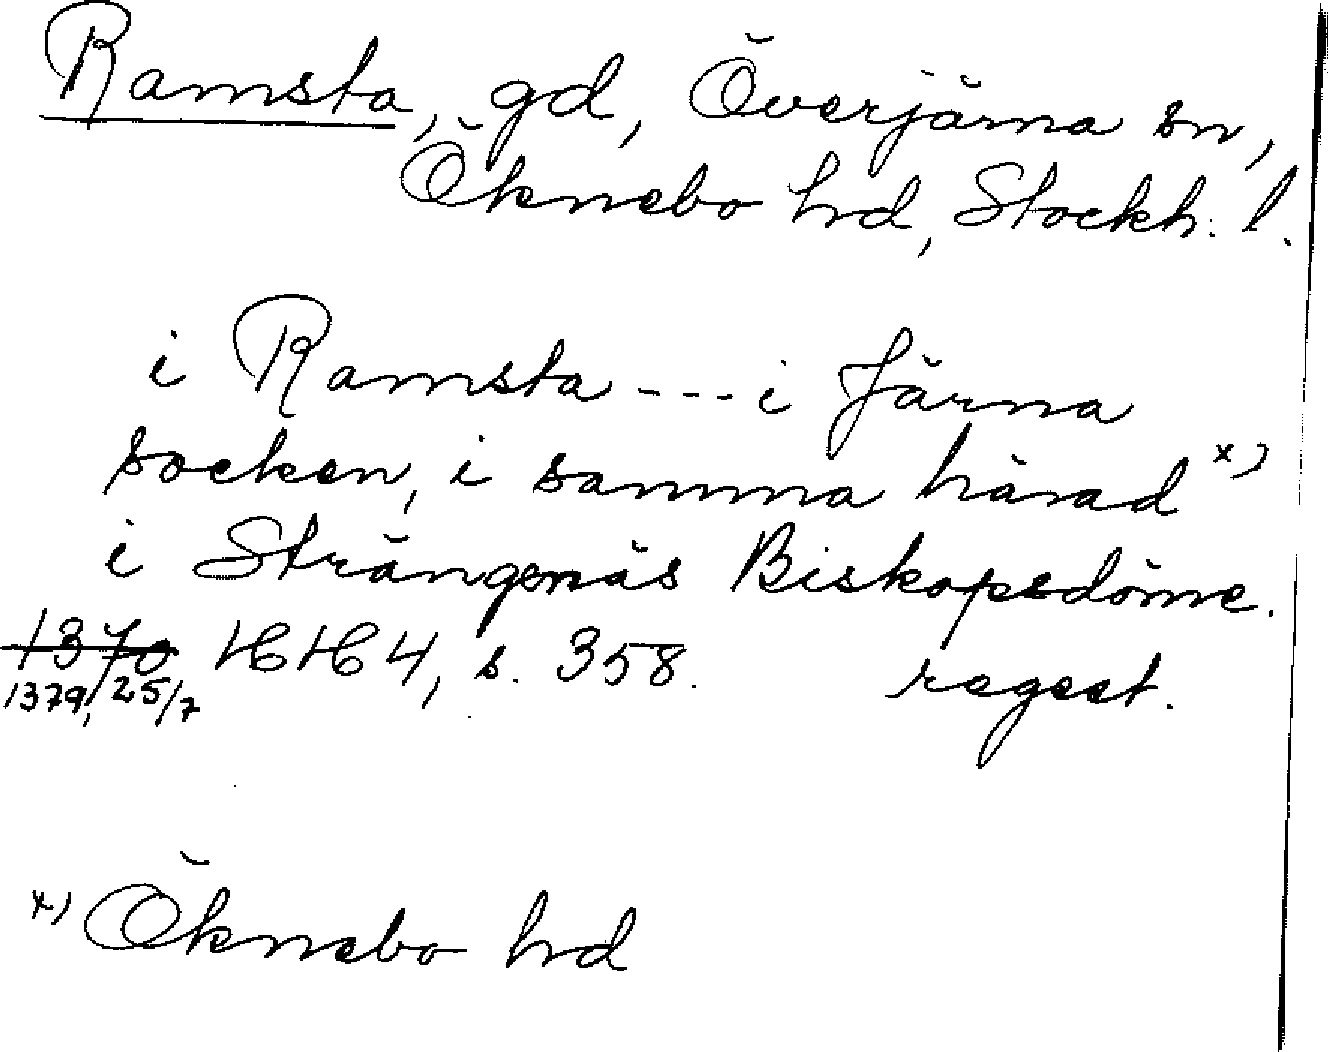 Ramsta, gd, Överjärna sn,
Öknebo hd, Stockh. l.
i Ramsta --- i Järna
socken, i samma härad x)
i Strängenäs Biskopsdöme.
1370 HH 4, s. 358. regest.
1379, 25/7
x) Öknebo hd